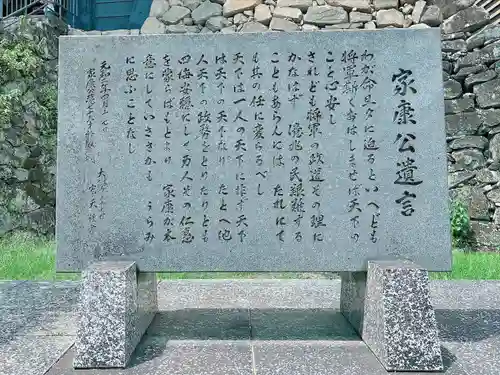 家康公遺言
わが命旦夕に迫るといへども
将軍斯くおはしませば天下の
こと心安し
されども将軍の政道その理に
かなはず 億兆の民艱難する
こともあらんには たれにて
も其の任に変らるべし
天下は一人の天下に非ず天下
は天下の天下なり たとへ他
人天下の政務をとりたりとも
四海安穏にして万人その仁恩
を蒙らばもとより 家康が本
意にしていささかも うらみ
に思ふことなし
元和二年四月